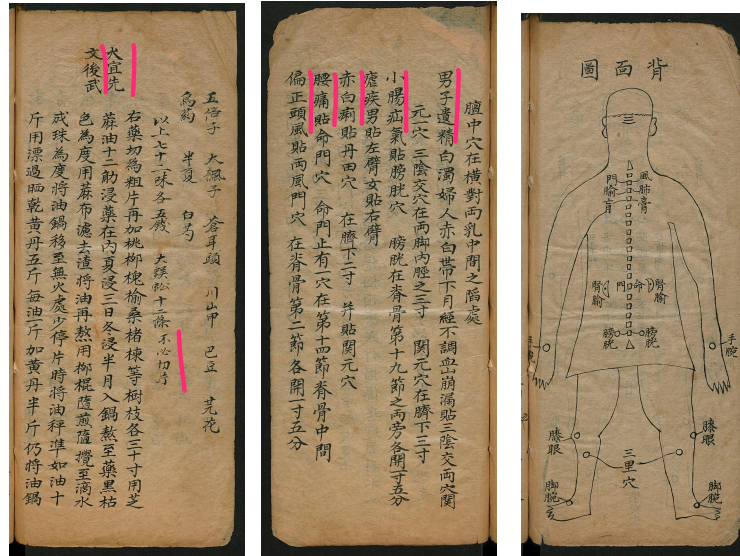 五倍子 大楓子 蒼耳頭 川山甲 巴豆 芫花
烏葯 半夏 白芍
以上七十二味各五錢 大蜈蚣十二條不必切
右藥切為粗片再加桃柳槐榆桑楮楝等樹枝各三十寸用芝
蔴油十二觔浸藥在內夏浸三日冬浸半月入鍋熬至藥黑枯
色為度用蔴布濾去渣將油再熬用柳棍隨煎隨攪至滴水
成珠為度將油鍋移至無火處少停片時將油秤準如油十
斤用漂過晒乾黃丹五斤每油一斤加黃丹半斤仍將油鍋
火宜先
文後武
膻中穴在橫對両乳中間之陷處
男子遺精白濁婦人赤白帶下月經不調血崩漏貼三陰交両穴関
元一穴 三陰交穴在両脚內脛之三寸 関元穴在臍下三寸
小腸疝氣貼膀胱穴 膀胱在脊骨第十九節之両旁各開一寸五分
瘧疾男貼左臂女貼右臂
赤白痢貼丹田穴 在臍下二寸 并貼関元穴
腰痛貼命門穴 命門止有一穴在第十四節脊骨中間
偏正頭風貼両風門穴 在脊骨第二節各開一寸五分
背面圖
風
門
肺
腧
膏
肓
命
門
腎
腧
腎
腧
膀
胱
膀
胱
手腕
手腕
膝眼
膝眼
三里穴
脚腕
脚腕